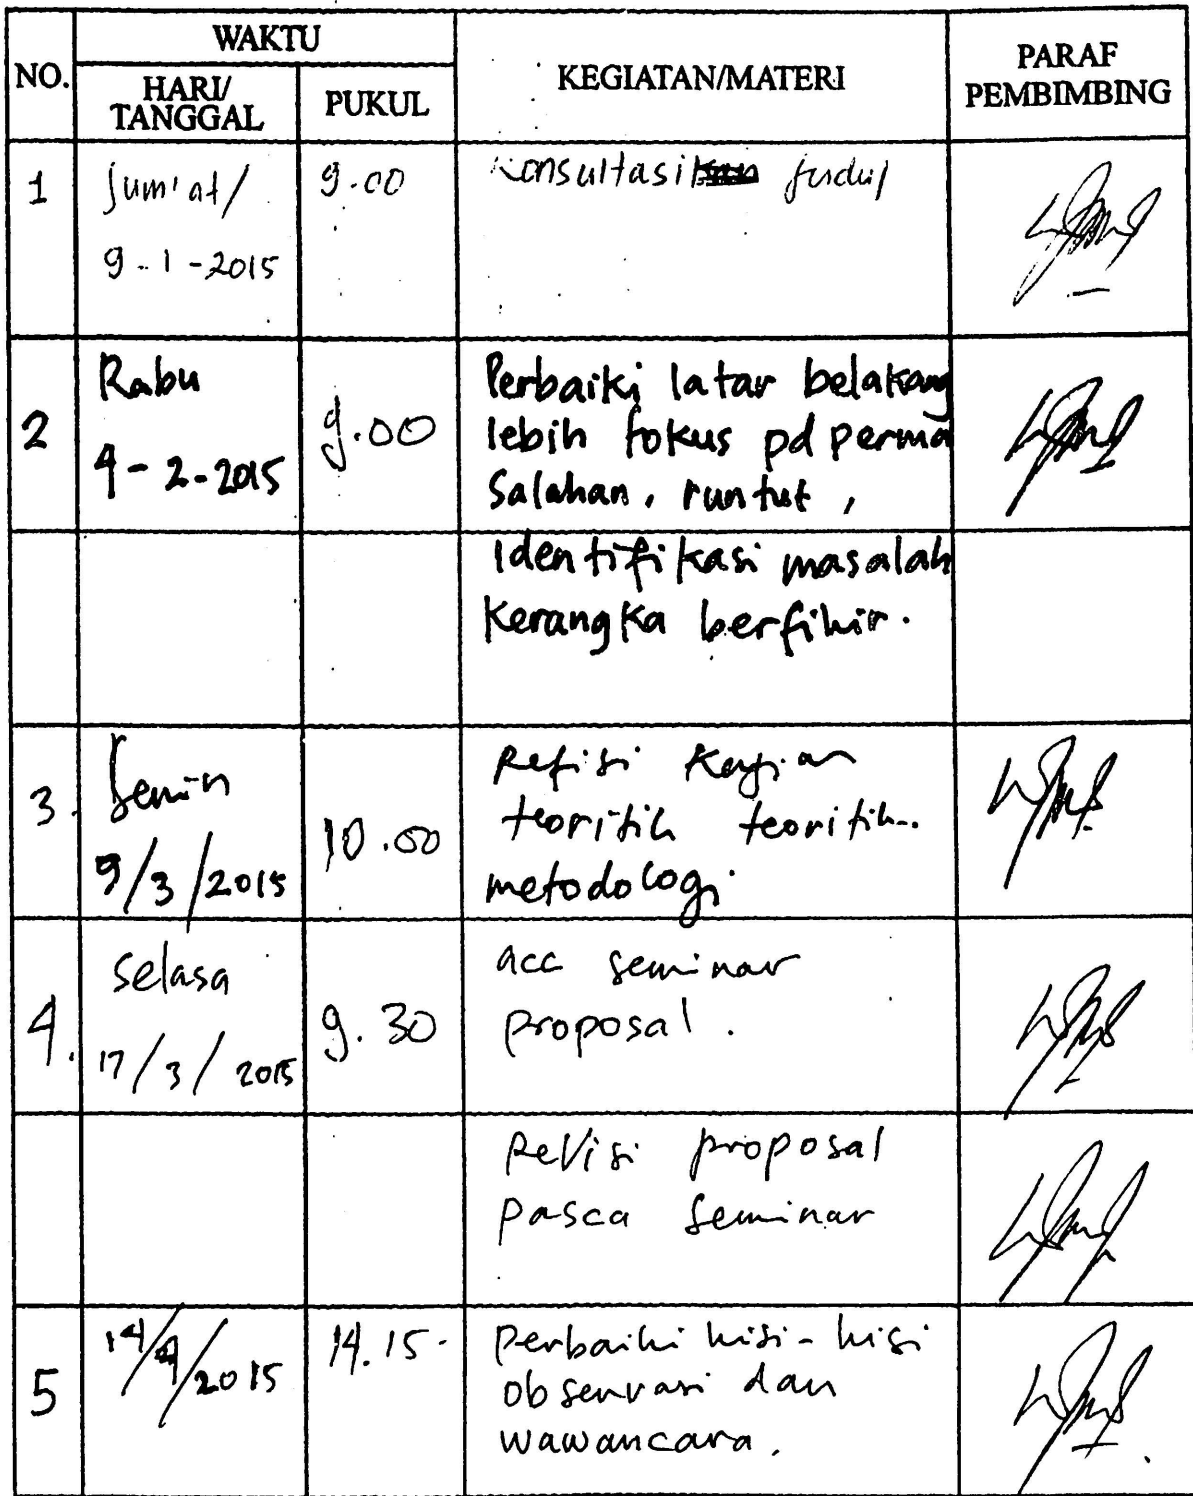 NO.
WAKTU
HARI/
TANGGAL
PUKUL
KEGIATAN/MATERI
PARAF
PEMBIMBING
1
Jum'at/
9-1-2015
9.00
Konsultasi judul
2
Rabu
4-2-2015
9.00
Perbaiki latar belakang
lebih fokus pd perma
salahan, runtut,
Identifikasi masalah
Kerangka berfikir.
3.
Senin
9/3/2015
10.00
Refisi Kajian
teoritik teoritik
metodologi
4.
Selasa
17/3/2015
9.30
acc seminar
proposal.
Revisi proposal
pasca seminar
5
14/4/2015
14.15.
Perbaiki kisi-kisi
observasi dan
wawancara.